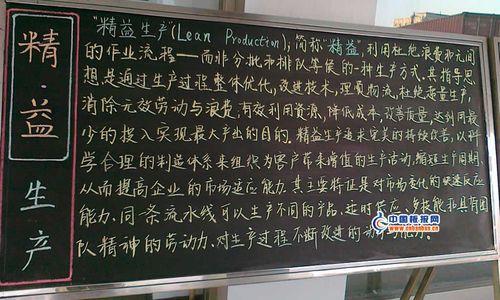 精·益生产
"精益生产"(Lean Production),简称"精益",利用杜绝浪费和无间
的作业流程——而非分批和排队等候的一种生产方式.其指导思
想是通过生产过程整体优化,改进技术,理顺物流,杜绝产量生产,
消除无效劳动与浪费,有效利用资源,降低成本,改善质量,达到用最
少的投入实现最大产出的目的.精益生产追求完美的持续改善,以科
学合理的制造体系来组织为客户带来增值的生产活动,缩短生产周期,
从而提高企业的市场适应能力.其主要特征是对市场变化的快速反应
能力.同一条流水线可以生产不同的产品,适时供应、多技能和具有团
队精神的劳动力、对生产过程不断改进的动力与能力.
中国板报网